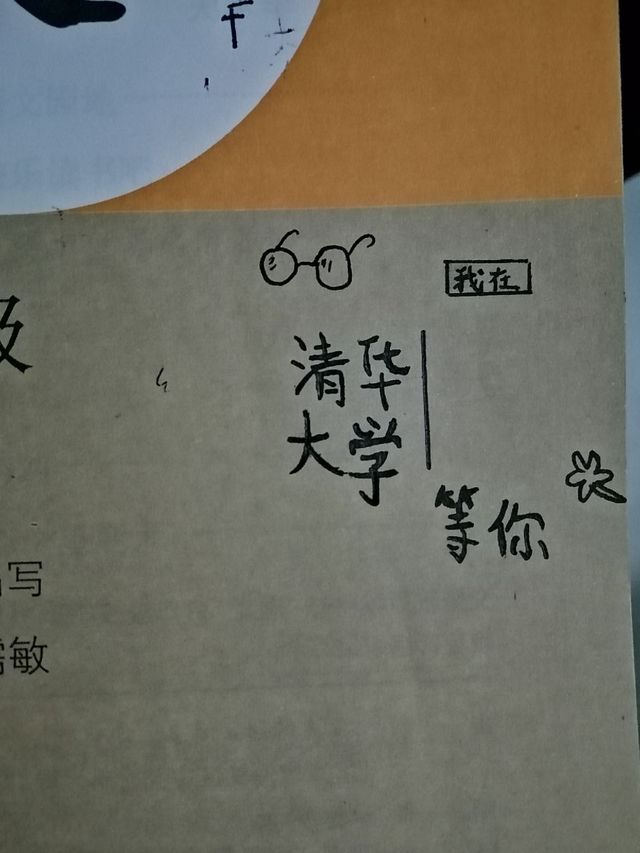 F
我在
级
清华
大学
等你
写
敏